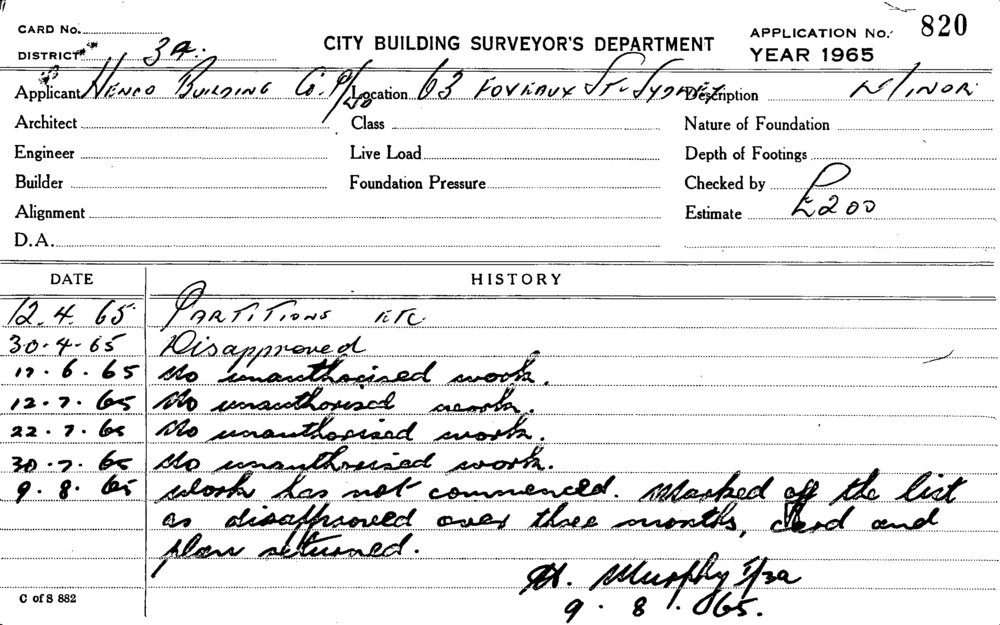 CARD No. CITY BUILDING SURVEYOR'S DEPARTMENT APPLICATION No. 820
DISTRICT 3A. YEAR 1965
Applicant Henco Building Co. P/Ld Location 63 Foveaux St. Sydney Description Minor
Architect Class Nature of Foundation
Engineer Live Load Depth of Footings
Builder Foundation Pressure Checked by
Alignment Estimate £200
D.A.
DATE HISTORY
12.4.65 Partitions etc
30.4.65 Disapproved
17.6.65 No unauthorised work.
12.7.65 No unauthorised work.
22.7.65 No unauthorised work.
30.7.65 No unauthorised work.
9.8.65 Work has not commenced. Marked off the list
as disapproved over three months, card and
plan returned.
Murphy
9.8.65.
C of S 882